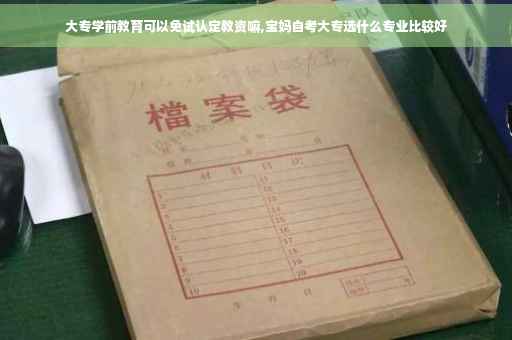 大专学前教育可以免试认定教资嘛,宝妈自考大专选什么专业比较好
檔案袋
材料目次
1 11
2 12
3 13
4 14
5 15
6 16
7 17
8 18
9 19
10 20
年 月 日